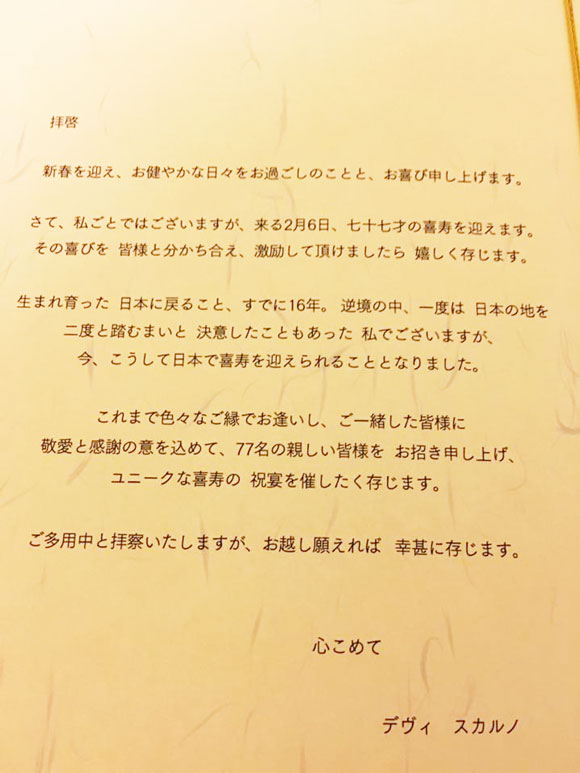 拝啓
新春を迎え、お健やかな日々をお過ごしのことと、お喜び申し上げます。
さて、私ごとではございますが、来る2月6日、七十七才の喜寿を迎えます。
その喜びを 皆様と分かち合え、激励して頂けましたら 嬉しく存じます。
生まれ育った 日本に戻ること、すでに16年。 逆境の中、一度は 日本の地を
二度と踏むまいと 決意したこともあった 私でございますが、
今、こうして日本で喜寿を迎えられることとなりました。
これまで色々なご縁でお逢いし、ご一緒した皆様に
敬愛と感謝の意を込めて、77名の親しい皆様を お招き申し上げ、
ユニークな喜寿の 祝宴を催したく存じます。
ご多用中と拝察いたしますが、お越し願えれば 幸甚に存じます。
心こめて
デヴィ スカルノ